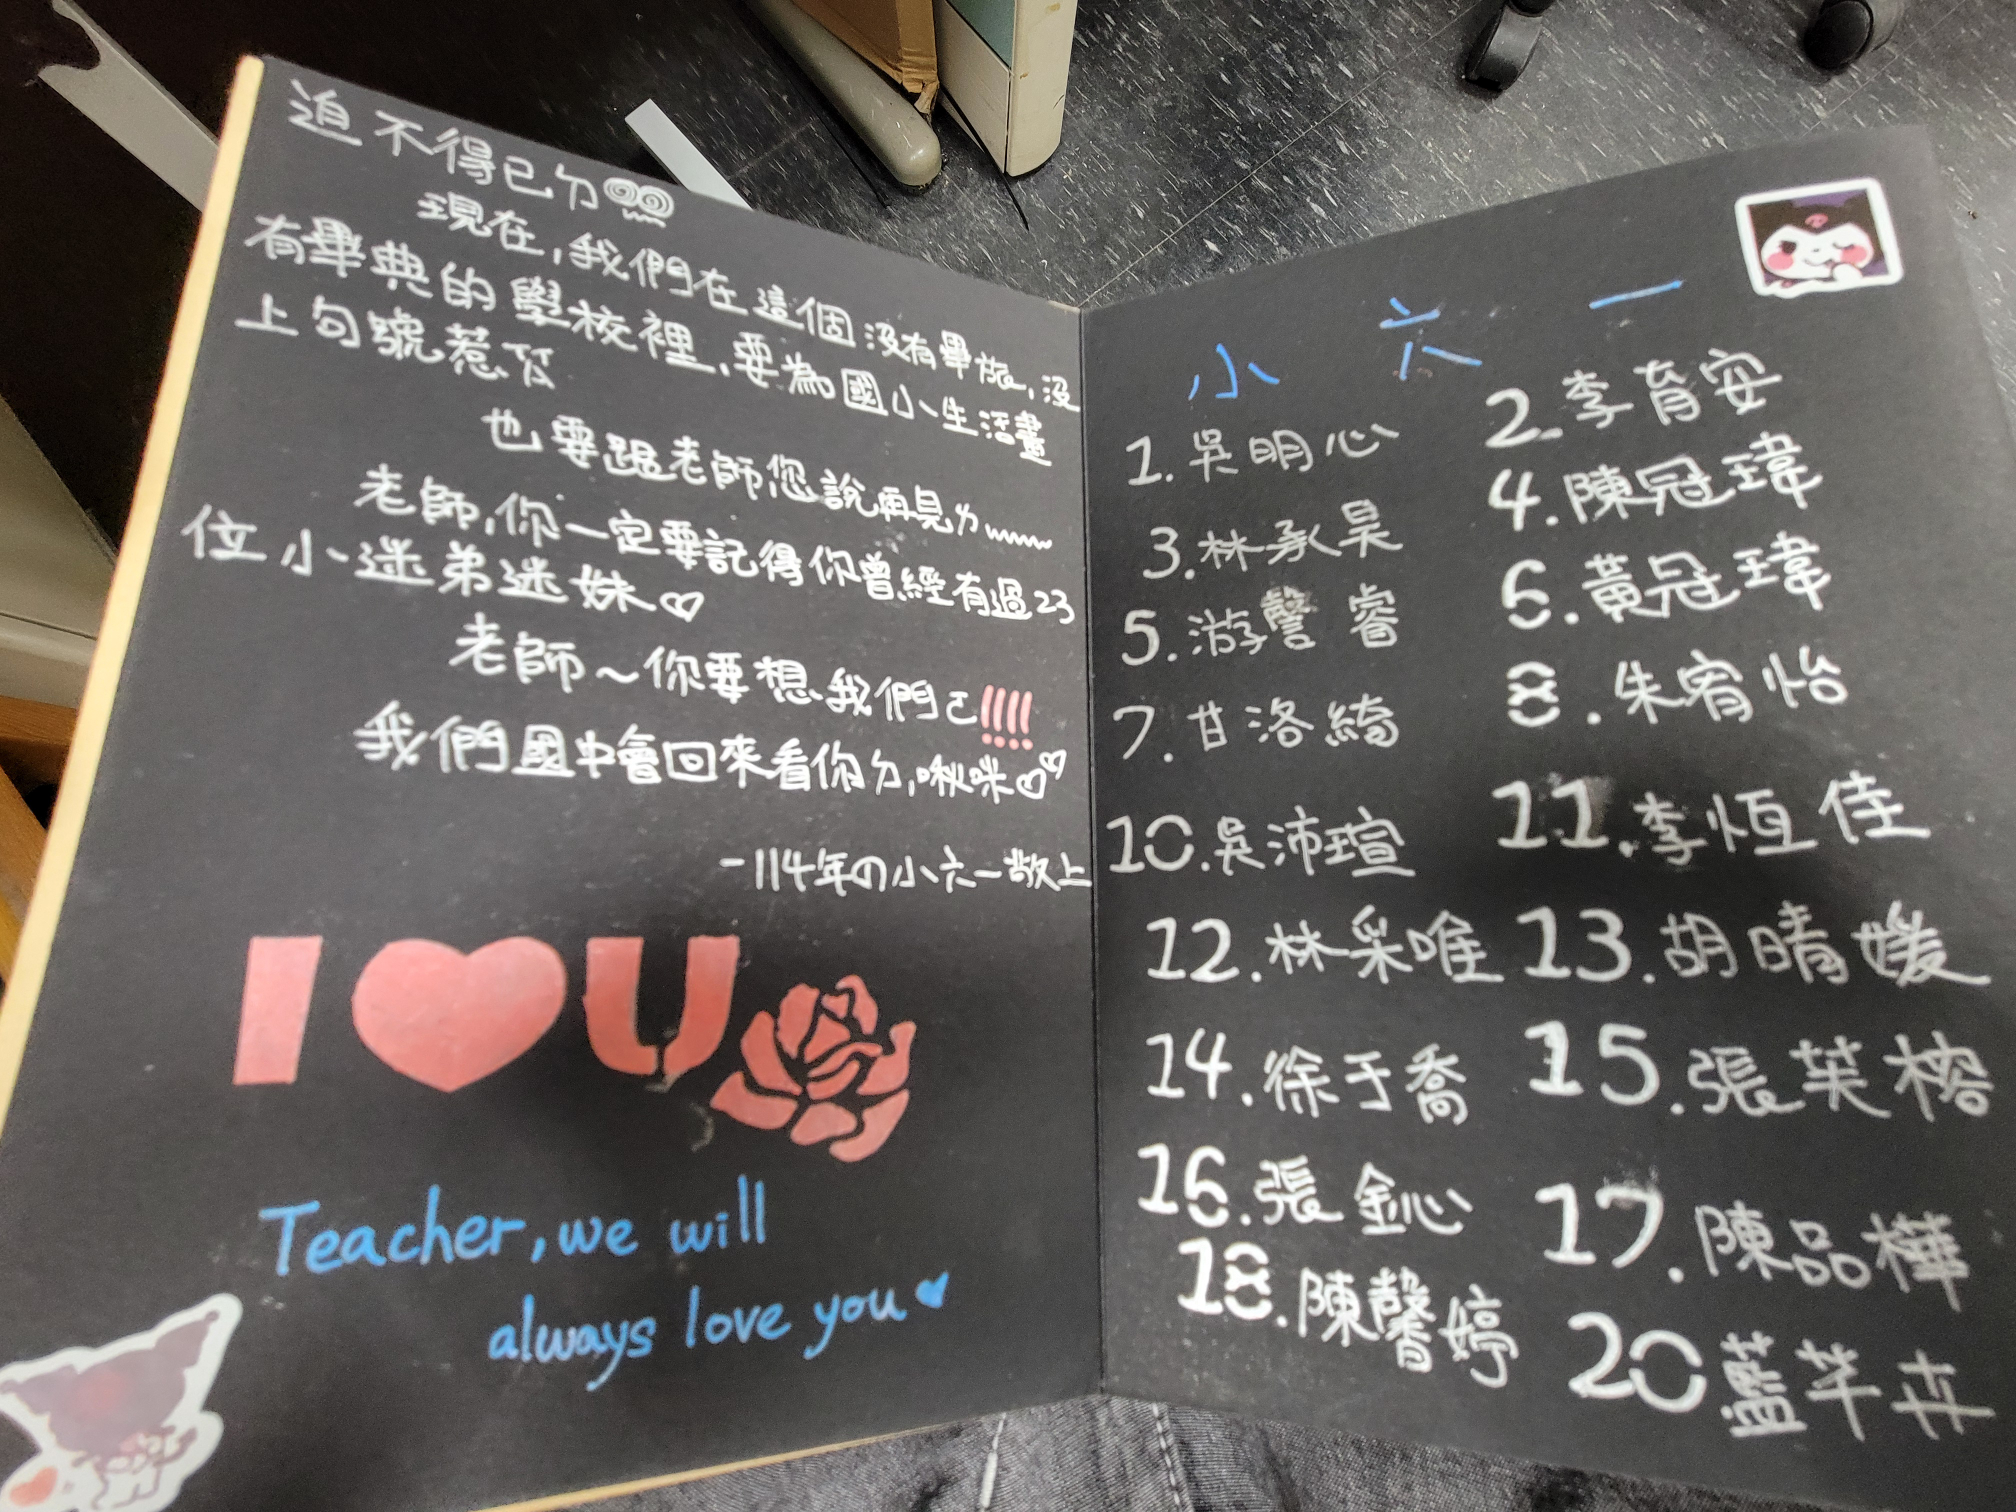 迫不得已ㄉ
現在,我們在這個沒有畢旅,沒
有畢典的學校裡,要為國小生活畫
上句號惹
也要跟老師您說再見ㄌ
老師,你一定要記得你曾經有過23
位小迷弟迷妹♡
老師~你要想我們ㄛ!!!!
我們國中會回來看你ㄉ,啾咪♡♡
-114年の小六一敬上
I ♥ U
Teacher, we will
always love you♥
小六一
1. 吳明心 2. 李育安
3. 林承昊 4. 陳冠瑋
5. 游謦睿 6. 黃冠瑋
7. 甘洛綺 8. 朱宥怡
10. 吳沛瑄 11. 李恆佳
12. 林采唯 13. 胡晴媛
14. 徐于喬 15. 張芙榕
16. 張鈊 17. 陳品樺
18. 陳馨婷 20 藍芊卉